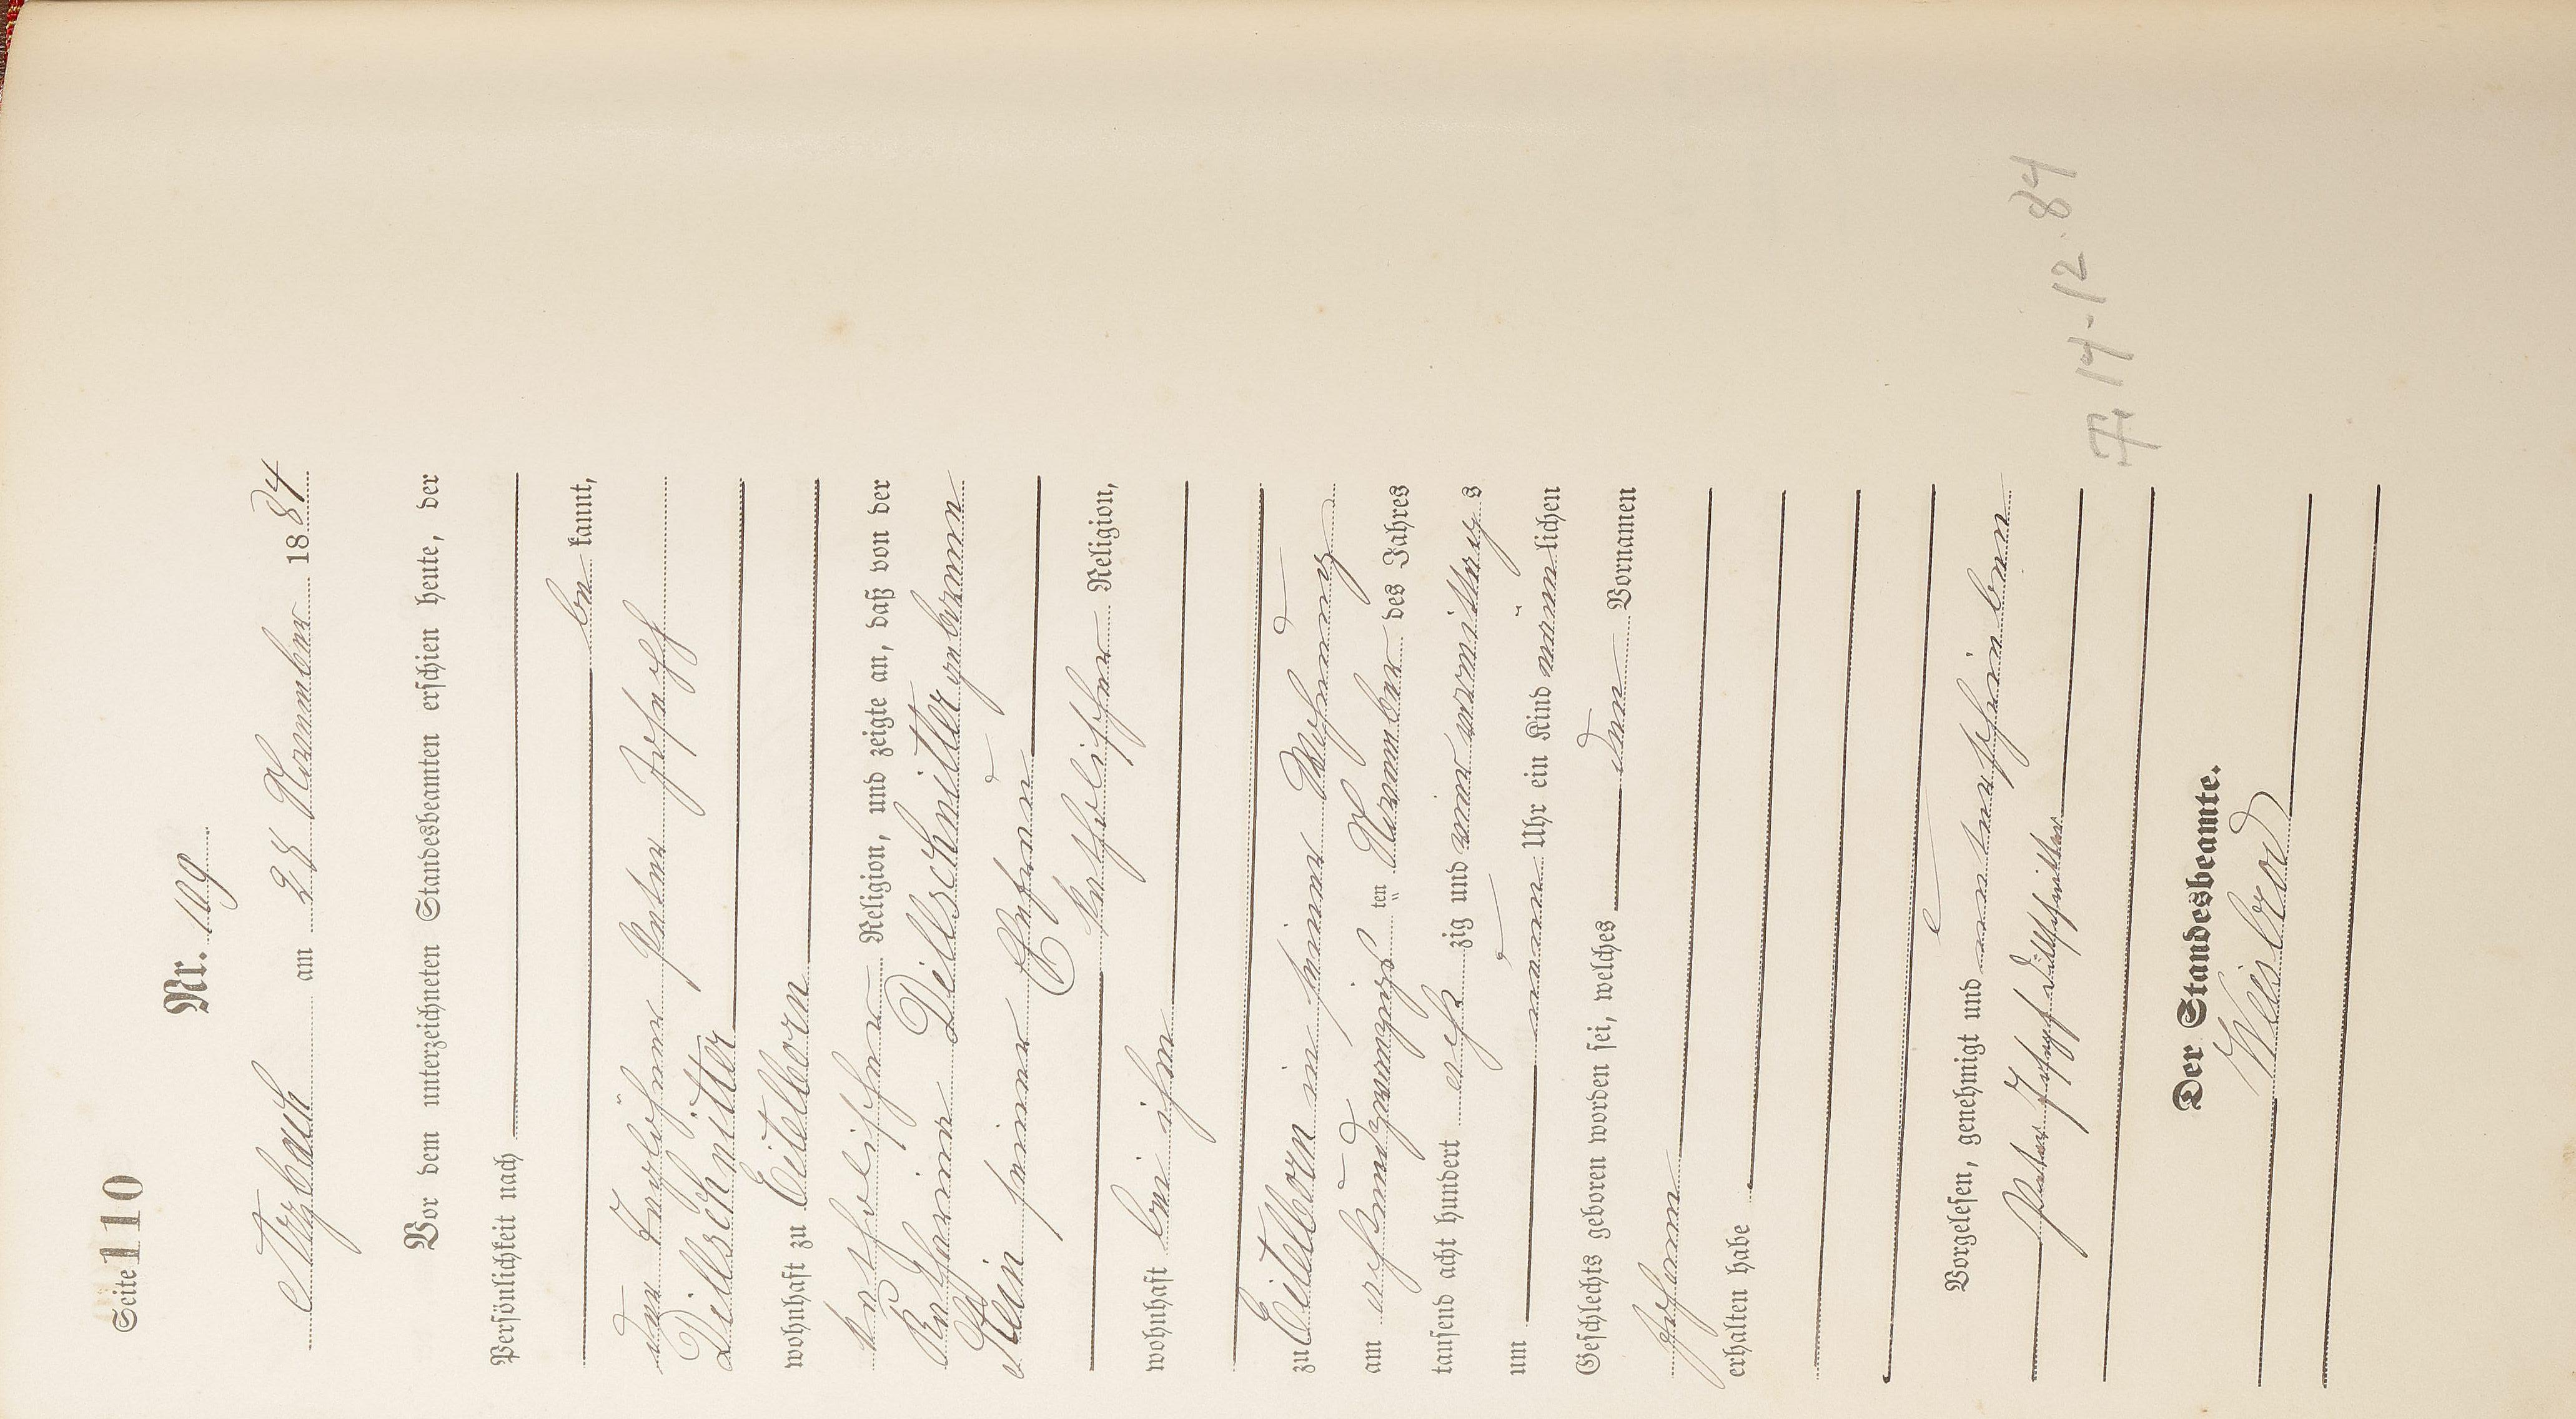 Seite 110
Nr. 109
Arzbach am 28 November 1884
Vor dem unterzeichneten Standesbeamten erschien heute, der
Persönlichkeit nach
be kannt,
der Taglöhner Peter Josef
Dillschnitter
wohnhaft zu Eitelborn
katholischer Religion, und zeigte an, daß von der
Katharina Dillschnitter geborenen
Stein seiner Ehefrau
katholischer Religion,
wohnhaft bei ihm
zu Eitelborn in seiner Wohnung
am achtundzwanzigs ten November des Jahres
tausend acht hundert acht zig und vier vormittags
um Uhr ein Kind männlichen
Geschlechts geboren worden sei, welches den Vornamen
Johann
erhalten habe
Vorgelesen, genehmigt und unterschrieben
Peter Josef Dillschnitter
7. 14-12. 84
Der Standesbeamte.
Weisbrod